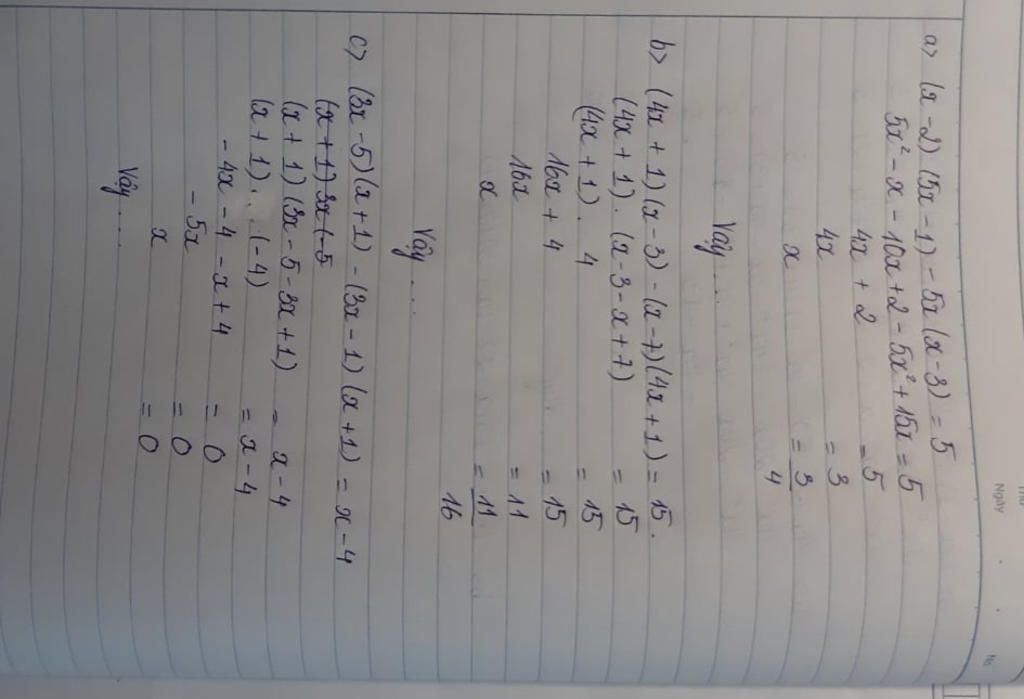 Ngày
No
a> (x - 2) (5x - 1) - 5x (x - 3) = 5
5x² - x - 10x + 2 - 5x² + 15x = 5
4x + 2 = 5
4x = 3
x = 3/4
Vậy ...
b> (4x + 1) (x - 3) - (x - 7) (4x + 1) = 15.
(4x + 1) . (x - 3 - x + 7) = 15
(4x + 1) . 4 = 15
16x + 4 = 15
16x = 11
x = 11/16
Vậy ...
c> (3x - 5) (x + 1) - (3x - 1) (x + 1) = x - 4
(x + 1) 3x (-5
(x + 1) (3x - 5 - 3x + 1) = x - 4
(x + 1) . (-4) = x - 4
- 4x - 4 - x + 4 = 0
- 5x = 0
x = 0
Vậy ....